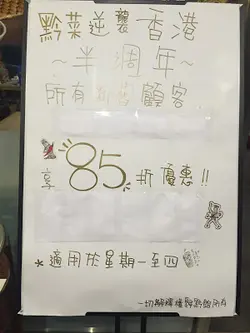 黔菜逆襲香港
～半週年～
所有新舊顧客
享85折優惠!!
*適用於星期一至四
一切解釋權歸黔館所有